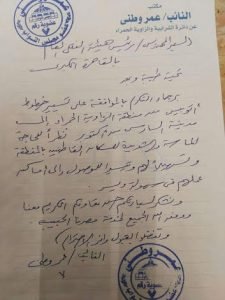 مكتب
النائب/ عمر وطنى
عن دائرة الشرابية والزاوية الحمراء
السيد المهندس / رئيس هيئة النقل العام
بالقاهرة الكبرى
تحية طيبة وبعد
برجاء التكرم بالموافقة على تسيير خطوط
أتوبيس من منطقة الزاوية الحمراء إلى
مدينة السادس من أكتوبر نظراً للحاجة
الماسة لسكان القاطنين بالمنطقة
وتسهيلاً لهم للوصول إلى أماكن
عملهم فى سهولة ويسر
ونشكر لسيادتكم حسن تعاونكم الكريم معنا
ووفقنا الله الجميع لخدمة مصرنا الحبيبة
وتفضلوا بقبول وافر الاحترام
النائب / عمر وطنى